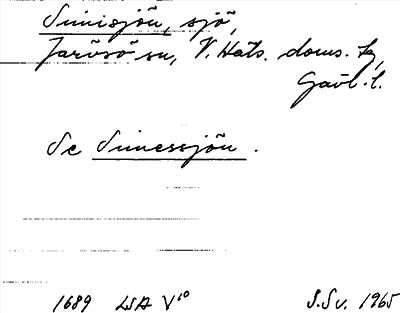 Simisjön, sjö,
Järvsö sn, V. Häls. doms. tg,
Gävl. l.
Se Simessjön.
1689 LSA V¹⁰ S.Sv. 1965